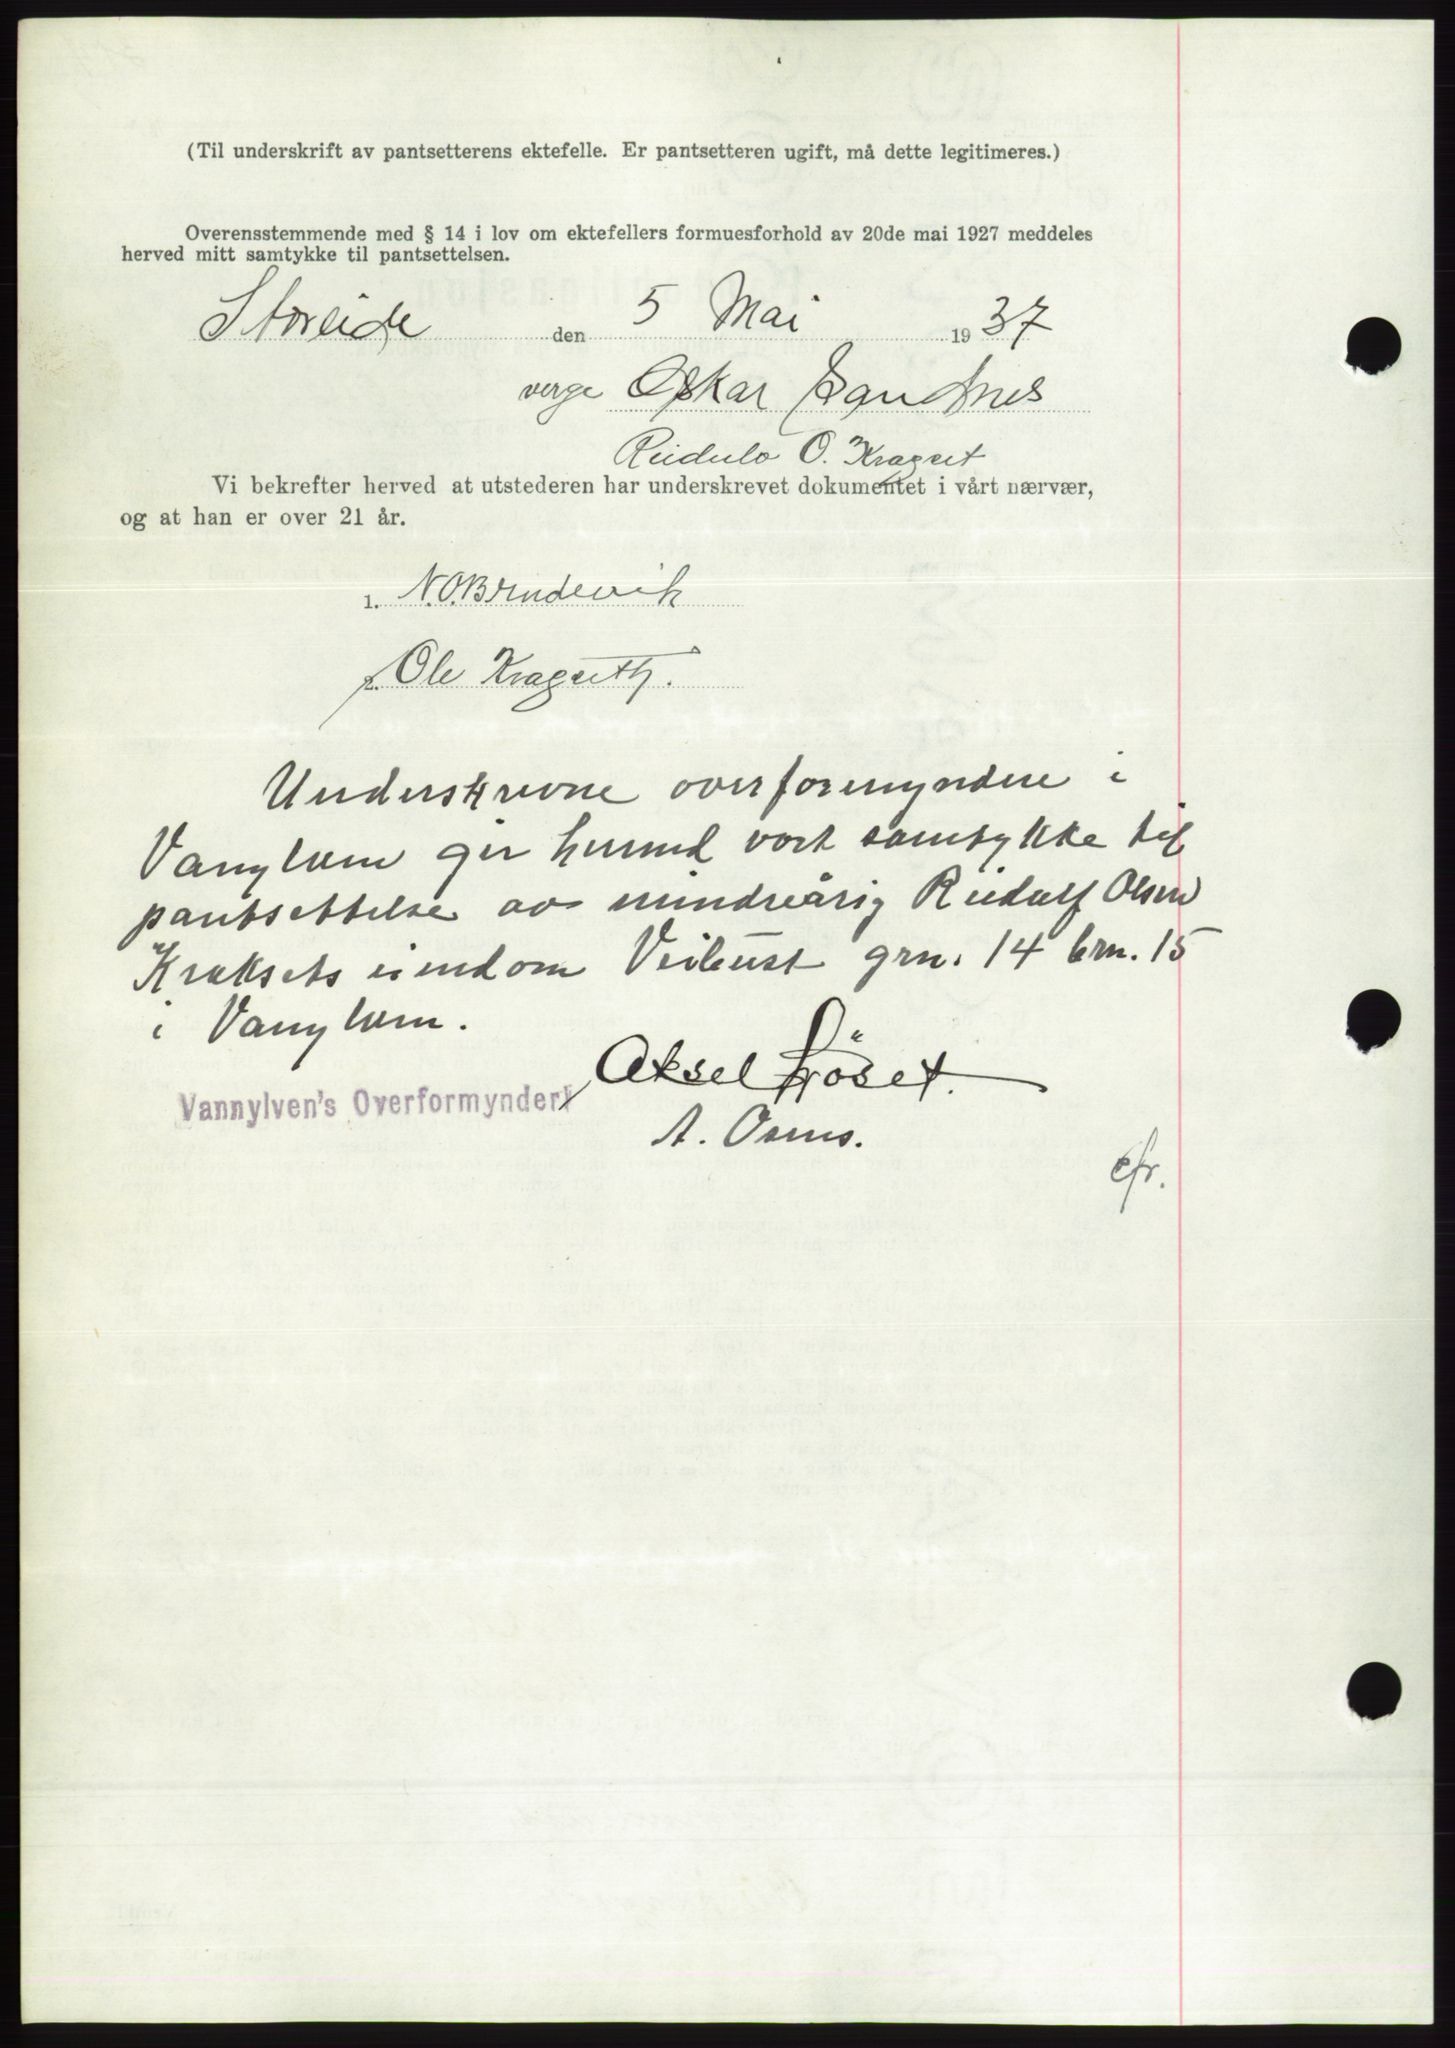 (Til underskrift av pantsetterens ektefelle. Er pantsetteren ugift, må dette legitimeres.)
Overensstemmende med § 14 i lov om ektefellers formuesforhold av 20de mai 1927 meddeles
herved mitt samtykke til pantsettelsen.
Storeide den 5 Mai 1937
verge Oskar Sandnes
O. Kragset
Vi bekrefter herved at utstederen har underskrevet dokumentet i vårt nærvær,
og at han er over 21 år.
1. N.O. Brudevik
2. Ole Kragseth.
Underskrevne overformyndere i
Vanylven gir herved vort samtykke til
pantsettelse av mindreårig Rudolf Olsen
Kraksets eiendom Veibust grn. 14 brn. 15
i Vanylven.
Aksel Løset.
Vannylven's Overformynderi
A. Osnes.
cfr.